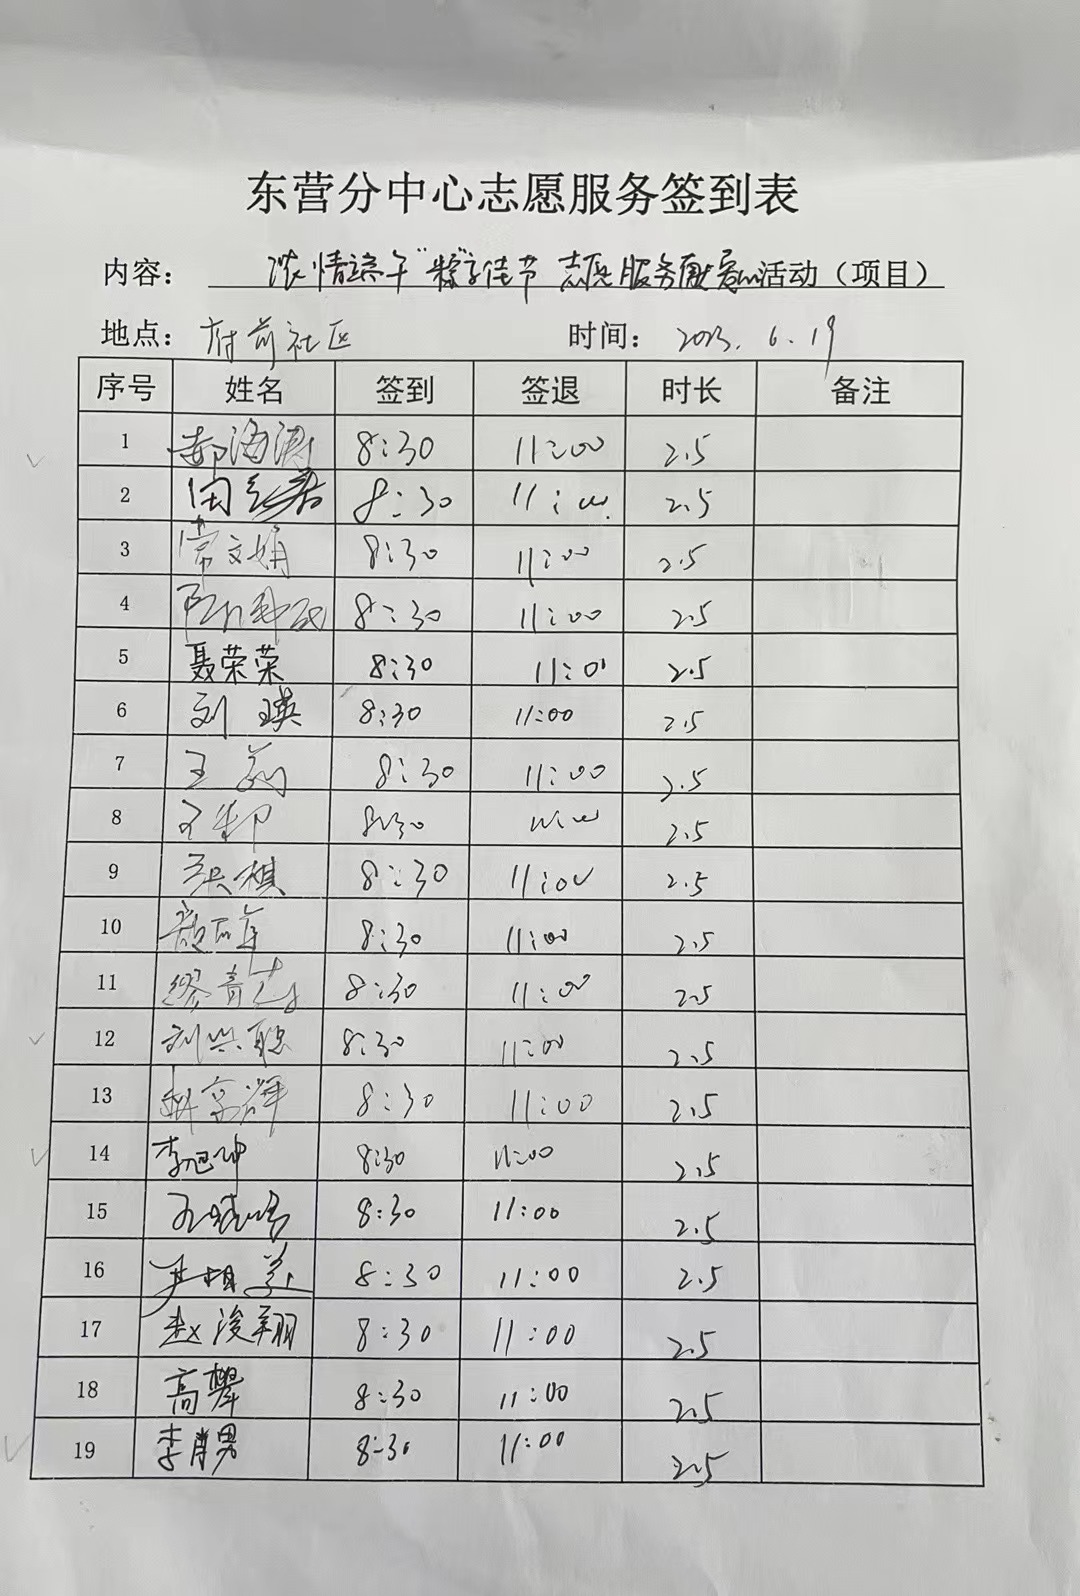 东营分中心志愿服务签到表
内容： 浓情端午"粽"享佳节 志愿服务献爱心活动（项目）
地点：府前社区 时间：2023.6.19
序号 姓名 签到 签退 时长 备注
1 郝海涛 8:30 11:00 2.5
2 8:30 11:00 2.5
3 常文娟 8:30 11:00 2.5
4 8:30 11:00 2.5
5 聂荣荣 8:30 11:00 2.5
6 刘瑛 8:30 11:00 2.5
7 王 8:30 11:00 2.5
8 王 8:30 11:00 2.5
9 祺 8:30 11:00 2.5
10 8:30 11:00 2.5
11 缪青 8:30 11:00 2.5
12 刘兴聪 8:30 11:00 2.5
13 8:30 11:00 2.5
14 李旭坤 8:30 11:00 2.5
15 8:30 11:00 2.5
16 8:30 11:00 2.5
17 赵浚翔 8:30 11:00 2.5
18 高 8:30 11:00 2.5
19 李肖男 8:30 11:00 2.5